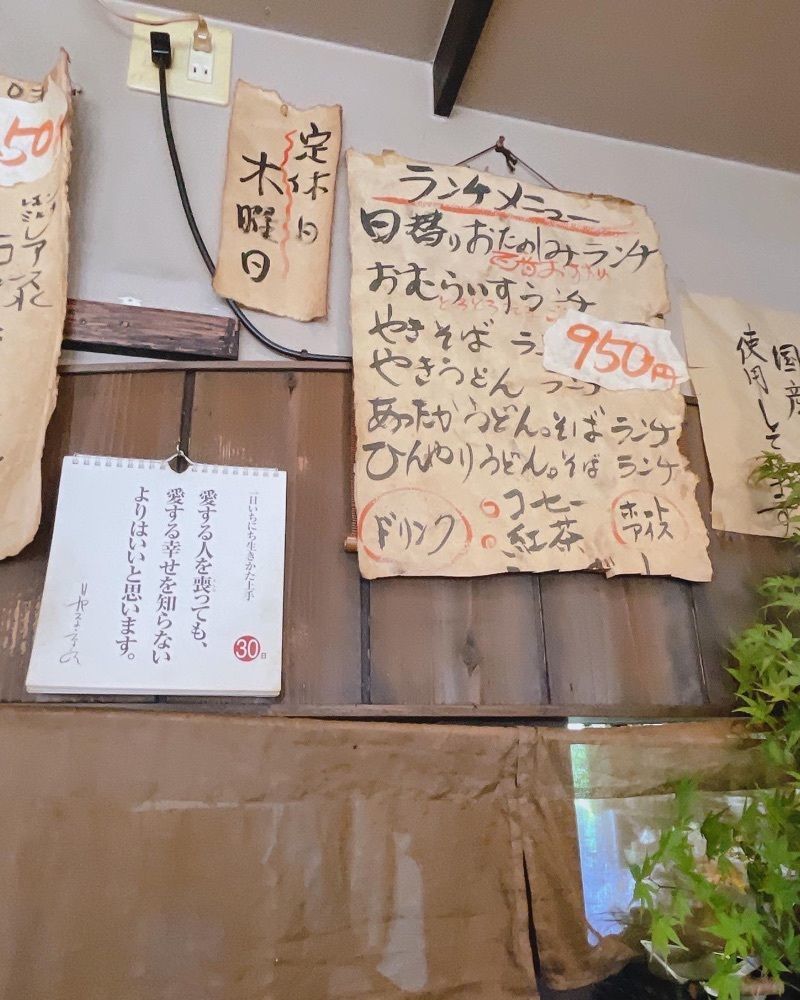 定休日
木曜日
ランチメニュー
日替りおたのしみランチ
おむらいすランチ
とろとろ
やきそば
やきうどん
950円
あったかうどん。そば ランチ
ひんやりうどん。そば ランチ
ドリンク
コーヒー
紅茶
ホット
アイス
50
アイス
国産
使用してます
一日いちにち生きかた上手
愛する人を喪っても、
愛する幸せを知らない
よりはいいと思います。
30日